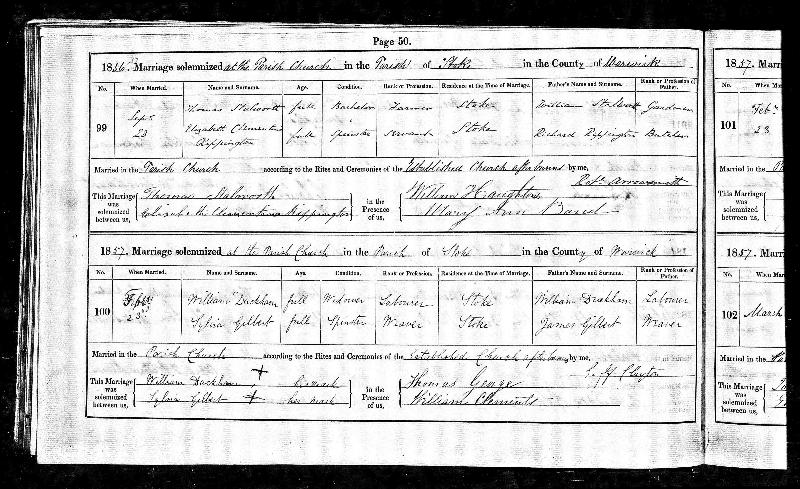 Page 50.
1856. Marriage solemnized at the Parish Church in the Parish of Stoke in the County of Warwick
No. When Married. Name and Surname. Age. Condition. Rank or Profession. Residence at the Time of Marriage. Father's Name and Surname. Rank or Profession of Father.
99 Sept. 23 Thomas full Bachelor Farmer Stoke William
Elizabeth Clementina Rippington full Spinster Servant Stoke Richard Rippington Butcher
Married in the Parish Church according to the Rites and Ceremonies of the Established Church after banns by me,
This Marriage was solemnized between us, Thomas
Clementina Rippington
in the Presence of us, William
Mary Ann
1857. Marriage solemnized at the Parish Church in the Parish of Stoke in the County of Warwick
No. When Married. Name and Surname. Age. Condition. Rank or Profession. Residence at the Time of Marriage. Father's Name and Surname. Rank or Profession of Father.
100 23rd William Duckham full Widower Labourer Stoke William Duckham Labourer
Sylvia Gilbert full Spinster Weaver Stoke James Gilbert Weaver
Married in the Parish Church according to the Rites and Ceremonies of the Established Church after banns by me,
Clayton
This Marriage was solemnized between us, William Duckham + his mark
Sylvia Gilbert + her mark
in the Presence of us, Thomas George
William Clements
1857. Marri
No. When Ma
101 Feby 23
Married in the
This Marriage was solemnized between us,
1857. Marri
No. When Ma
102 March
Married in the
This Marriage was solemnized between us,